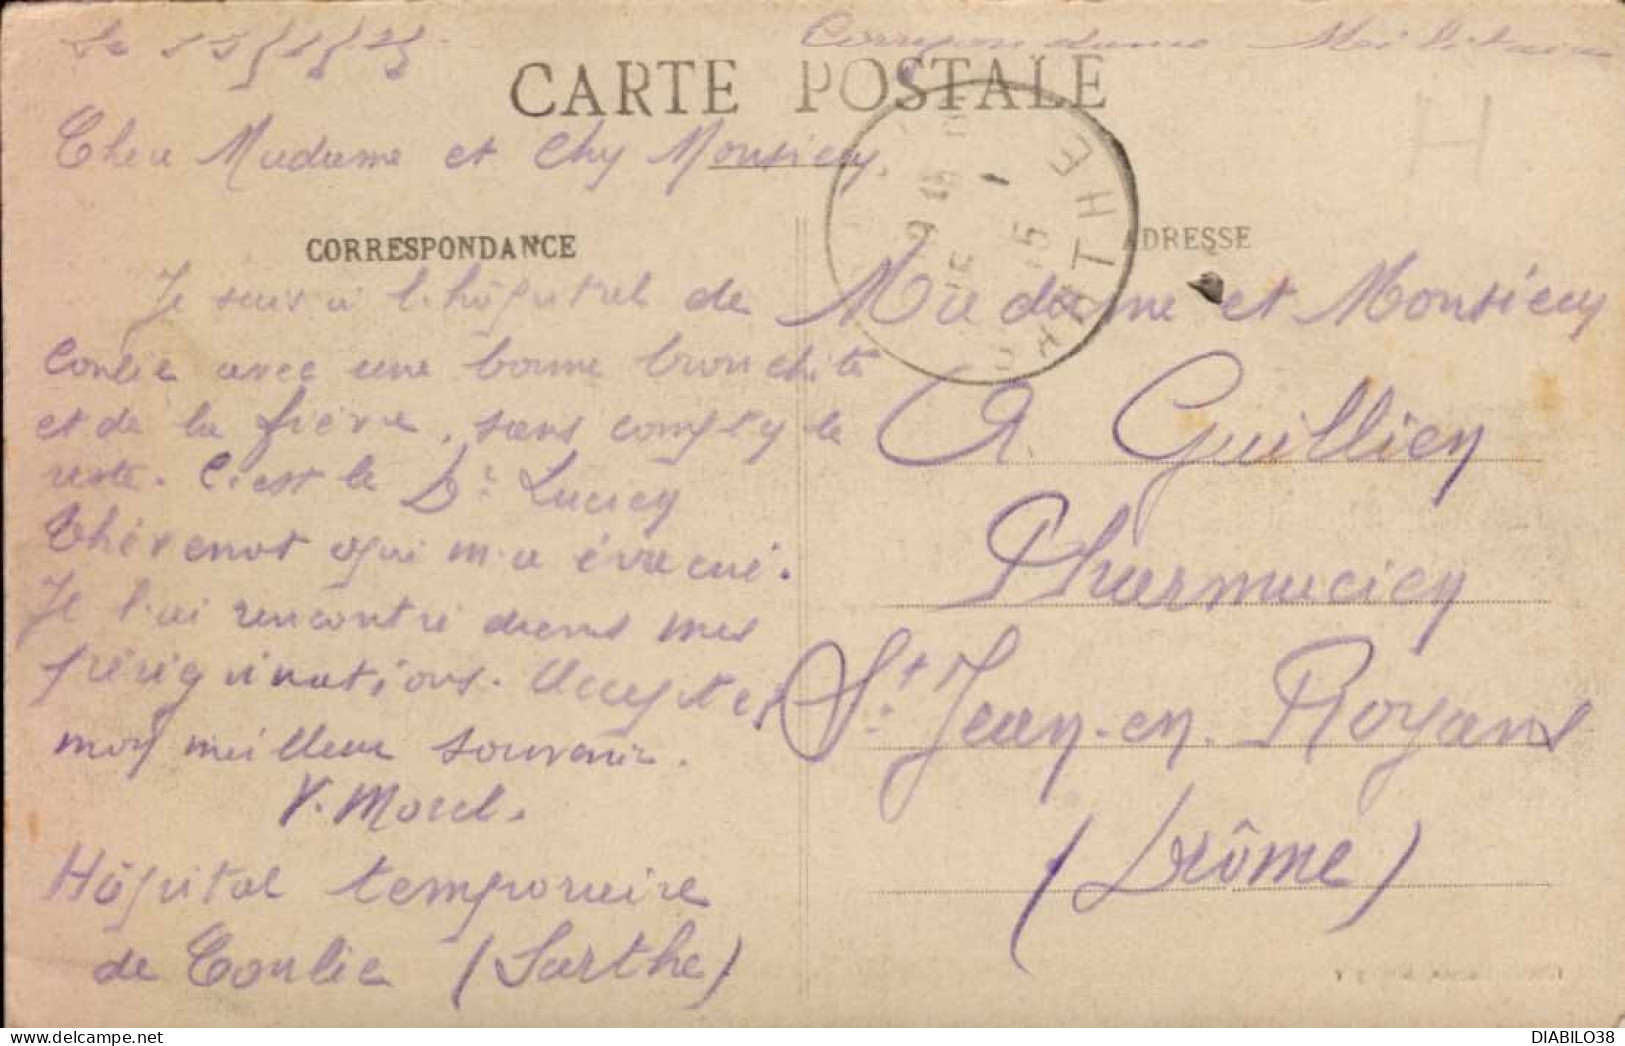 Le 15/1/15
Correspondance Militaire
CARTE POSTALE
H
Cher Madame et Cher Monsieur,
CORRESPONDANCE
ADRESSE
SARTHE
Je suis à l'hôpital de
Conlie avec une bonne bronchite
et de la fièvre, sans compter le
reste. C'est le Dr Lucien
Thévenot qui m'a évacué.
Je l'ai rencontré dans mes
périgrinations. Acceptez
mon meilleur souvenir.
V. Morel.
Hôpital temporaire
de Conlie (Sarthe)
Madame et Monsieur
A. Guillien
Pharmacien
St. Jean-en-Royans
(Drôme)
DIABILO38